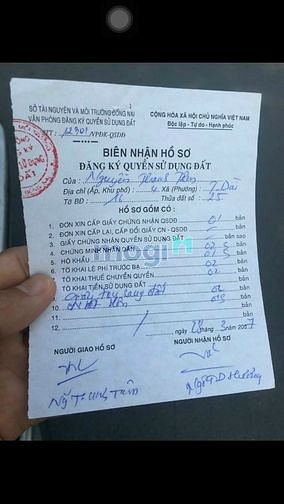 SỞ TÀI NGUYÊN VÀ MÔI TRƯỜNG ĐỒNG NAI
VĂN PHÒNG ĐĂNG KÝ QUYỀN SỬ DỤNG ĐẤT
CỘNG HÒA XÃ HỘI CHỦ NGHĨA VIỆT NAM
Độc lập - Tự do - Hạnh phúc
STT : /NPĐK-QSDĐ
BIÊN NHẬN HỒ SƠ
ĐĂNG KÝ QUYỀN SỬ DỤNG ĐẤT
Của : Nguyễn Thanh
Địa chỉ (Ấp, Khu phố) : 4 Xã (Phường) :
Tờ BĐ : 16 Thửa đất số : 25
HỒ SƠ GỒM CÓ :
1. ĐƠN XIN CẤP GIẤY CHỨNG NHẬN QSDĐ 01 bản
2. ĐƠN XIN CẤP LẠI, CẤP ĐỔI GIẤY CN - QSDĐ bản
3. GIẤY CHỨNG NHẬN QUYỀN SỬ DỤNG ĐẤT bản sao
4. CHỨNG MINH NHÂN DÂN 02 bản
5. HỘ KHẨU bản
6. TỜ KHAI LỆ PHÍ TRƯỚC BẠ 02 bản
7. TỜ KHAI THUẾ CHUYỂN QUYỀN bản
8. TỜ KHAI TIỀN SỬ DỤNG ĐẤT 02 bản
9. Giấy tay sang đất bản
10. bản
11. bản
12. bản
mogi
ngày 28 tháng 3 200
NGƯỜI GIAO HỒ SƠ
NGƯỜI NHẬN HỒ SƠ